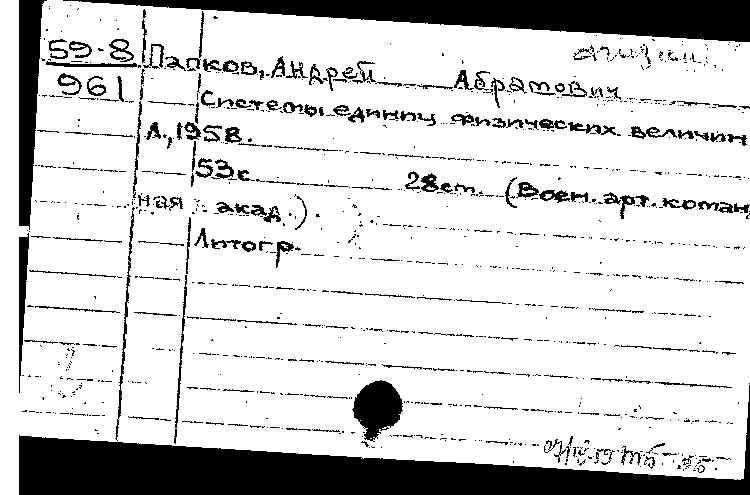 59-8
961
Папков, Андрей Абрамович
Системы единиц физических величин
Л., 1958.
53с 28см. (Воен. арт. коман
ная акад.).
Литогр.